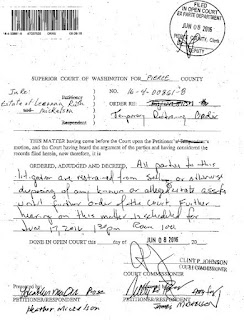 FILED
IN OPEN COURT
EX PARTE DEPARTMENT
JUN 08 2016
SUPERIOR COURT OF WASHINGTON FOR PIERCE COUNTY
In Re:
Estate of
Rita
Mickelson
Respondent
NO. 16-4-00881-8
ORDER RE:
Temporary Restraining Order
THIS MATTER having come before the Court upon the Petitioner's
motion, and the Court having heard the argument of the parties and having considered
the records filed herein, now therefore, it is
ORDERED, ADJUDGED AND DECREED. All parties to this
litigation are restrained from selling or otherwise
disposing of any known or alleged estate assets
until further order of the Court. Further
hearing on this matter is scheduled for
June 17, 2016, 1:30pm Room 100
DONE IN OPEN COURT this day of JUN 08 2016
CLINT P. JOHNSON
COURT COMMISSIONER
COURT COMMISSIONER
Presented by:
PETITIONER/RESPONDENT
PETITIONER/RESPONDENT
Heather Mickelson